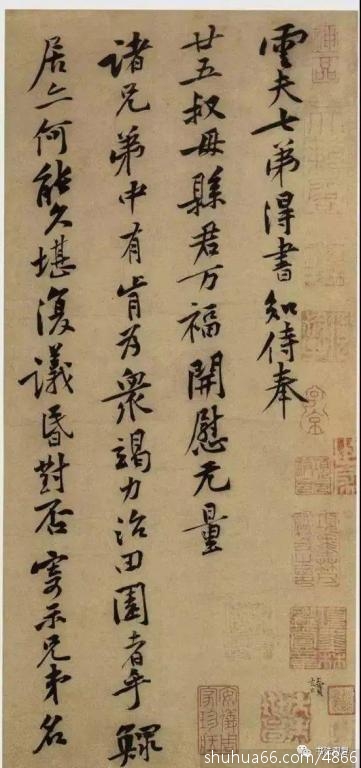 雲夫七弟得書知侍奉
廿五叔母縣君万福開慰无量
諸兄弟中有肯为衆竭力治田園者乎鰥
居亦何能久堪復議昏對否寄示兄弟名
讀
shuhua66.com/4866